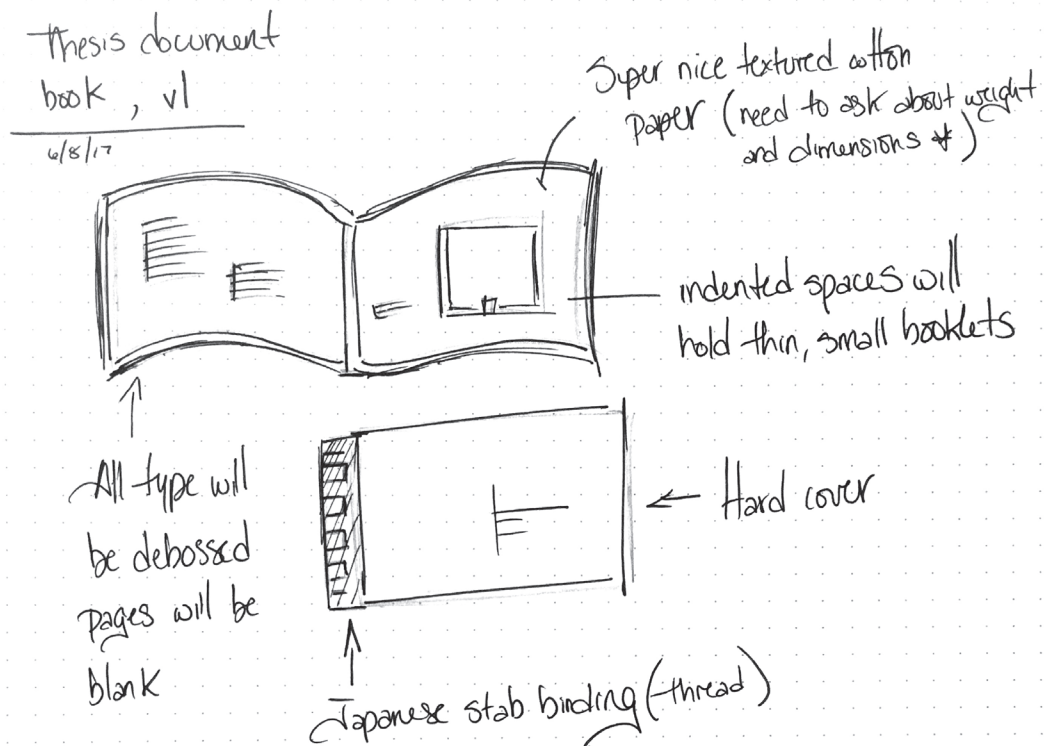 Thesis document
book, v1
6/8/17
Super nice textured cotton
paper (need to ask about weight
and dimensions *)
indented spaces will
hold thin, small booklets
All type will
be debossed
pages will be
blank
Hard cover
Japanese stab binding (thread)